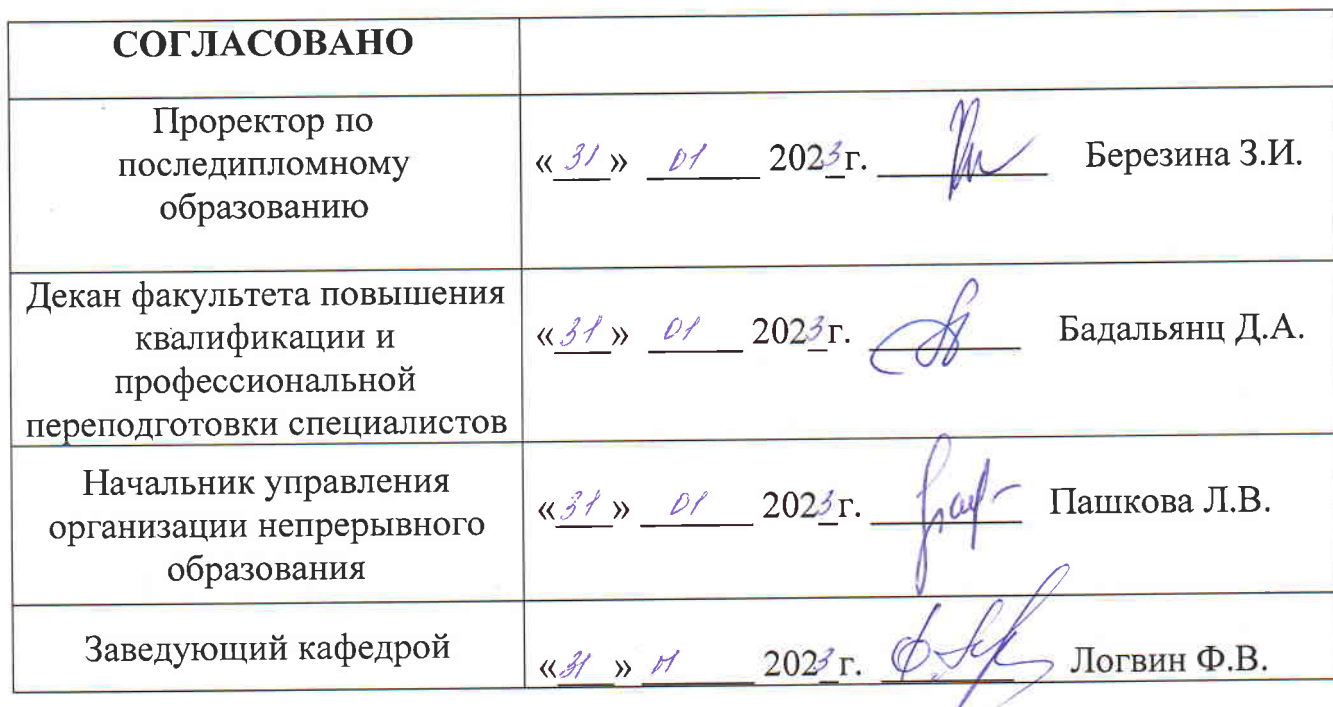 СОГЛАСОВАНО
Проректор по
последипломному
образованию
«31» 01 2023г. Березина З.И.
Декан факультета повышения
квалификации и
профессиональной
переподготовки специалистов
«31» 01 2023г. Бадальянц Д.А.
Начальник управления
организации непрерывного
образования
«31» 01 2023г. Пашкова Л.В.
Заведующий кафедрой
«31» 01 2023г. Логвин Ф.В.